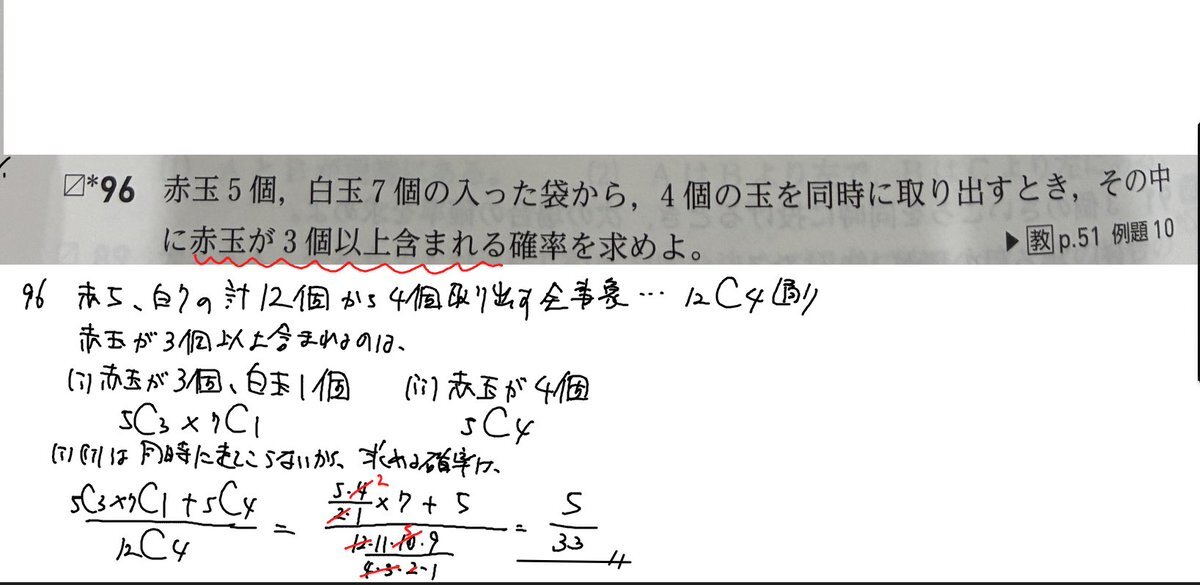 *96 赤玉5個，白玉7個の入った袋から，4個の玉を同時に取り出すとき，その中
に赤玉が3個以上含まれる確率を求めよ。 ▶教p.51 例題10
96 赤5、白7の計12個から4個取り出す全事象… 12C4(通り)
赤玉が3個以上含まれるのは、
(i) 赤玉が3個、白玉1個 (ii) 赤玉が4個
5C3×7C1 5C4
(i)(ii)は同時に起こらないから、求める確率は、
(5C3×7C1+5C4)/12C4 = ((5・4)/(2・1)×7+5)/((12・11・10・9)/(4・3・2・1)) = 5/33